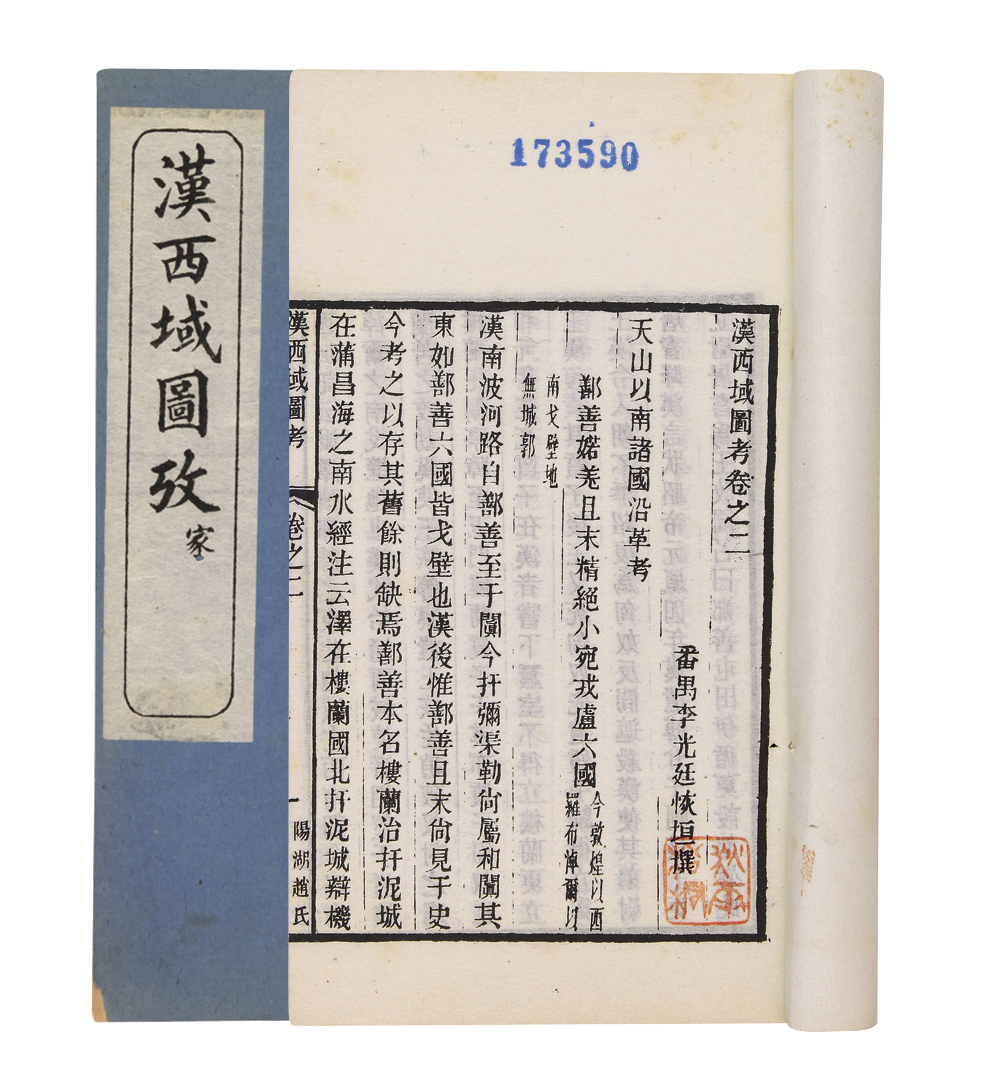 漢西域圖攷
家
173590
漢西域圖考卷之二
番禺李光廷恢垣撰
天山以南諸國沿革考
鄯善婼羌且末精絕小宛戎盧六國
今敦煌以西
羅布淖爾以
南戈壁地
無城郭
漢南波河路自鄯善至于闐今扜彌渠勒尙屬和闐其
東如鄯善六國皆戈壁也漢後惟鄯善且末尙見于史
今考之以存其舊餘則缺焉鄯善本名樓蘭治扜泥城
在蒲昌海之南水經注云澤在樓蘭國北扜泥城辯機
漢西域圖考 卷之二 一 陽湖趙氏